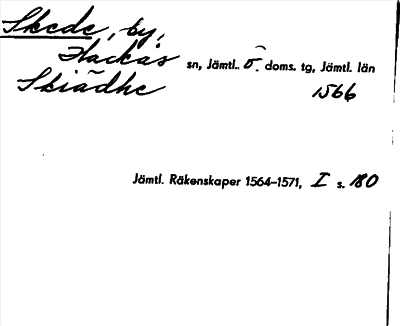 Skede, by,
Hackås sn, Jämtl.. ö. doms. tg, Jämtl. län
Skiädhe 1566
Jämtl. Räkenskaper 1564–1571, I s. 180